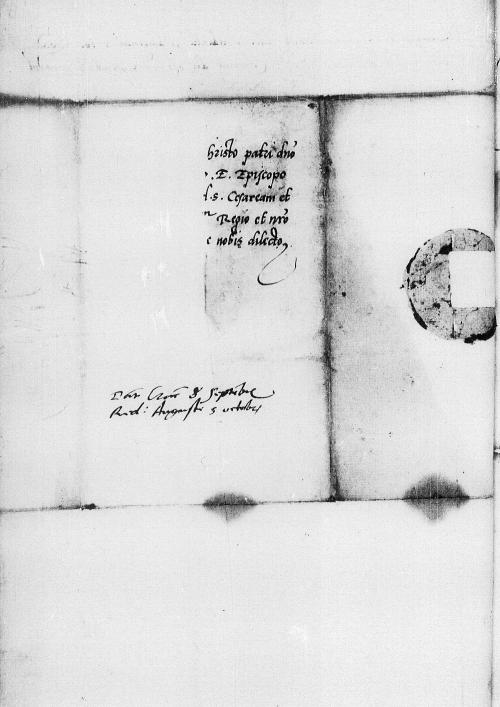 hristo patri dno
. E. Episcopo
l. s. Cesaream et
Regio et nro
e nobis dilecto
Dat Crac 8 Septembris
Red: Augustae 5 octobris